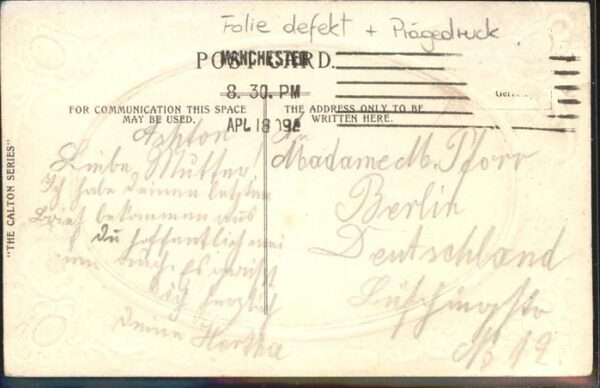 Folie defekt + Prägedruck
POST CARD.
MANCHESTER
8. 30. PM
APL 18 09
FOR COMMUNICATION THIS SPACE
MAY BE USED.
THE ADDRESS ONLY TO BE
WRITTEN HERE.
"THE CALTON SERIES"
Ashton
Liebe Mutter!
Ich habe deinen letzten
Brief bekommen aus
du hoffentlich
Es grüßt
dich herzlich
deine Hertha
Madame M. Pforr
Berlin
Deutschland
No 12